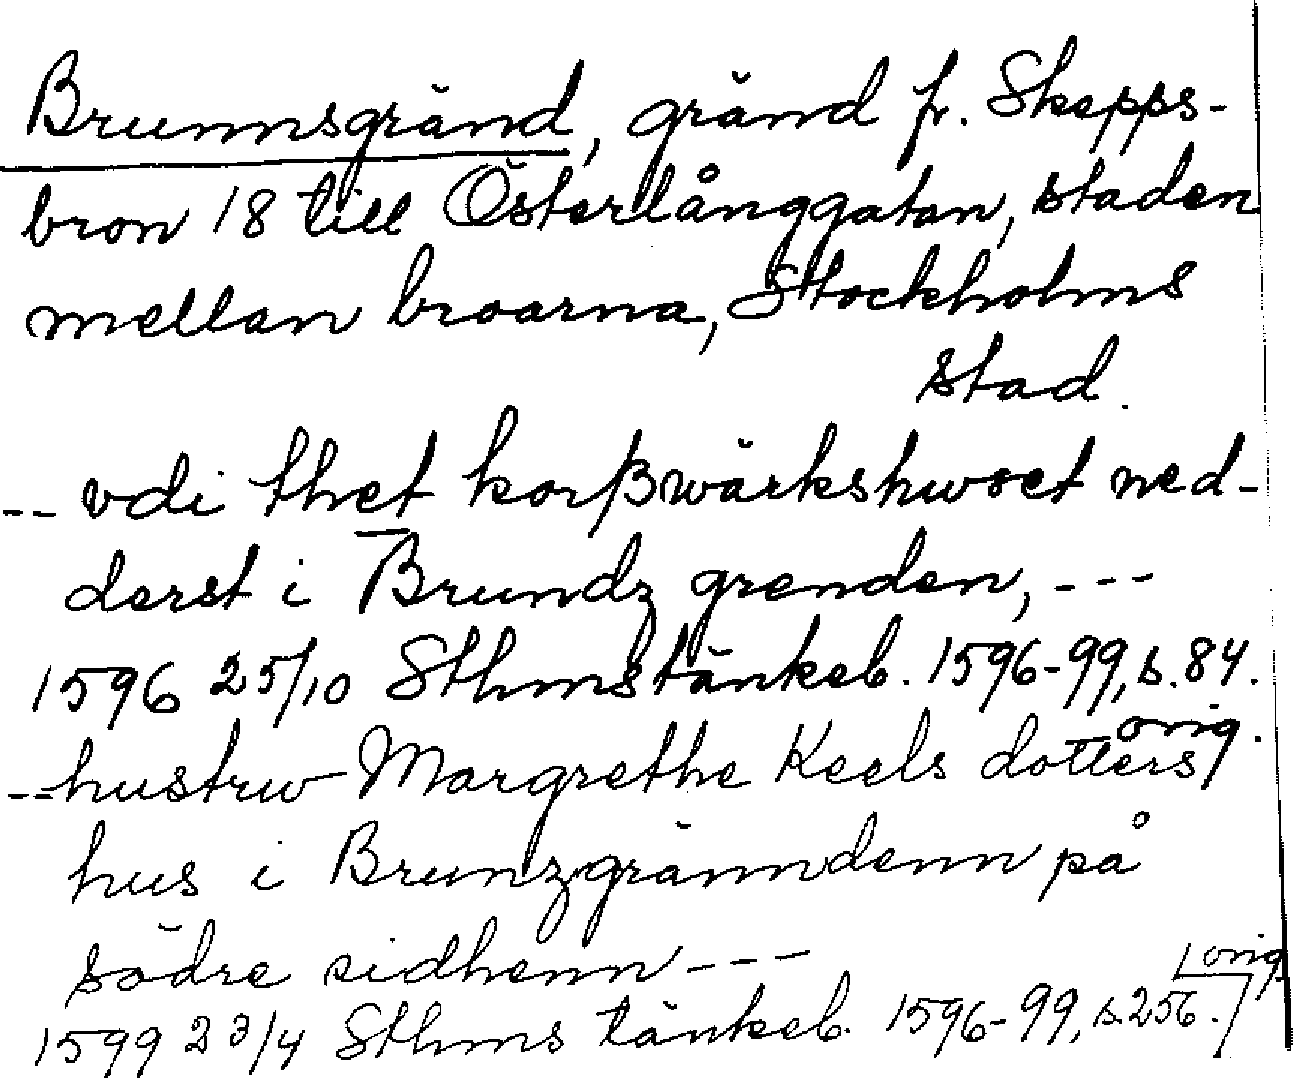 Brunnsgränd, gränd fr. Skepps-
bron 18 till Österlånggatan, staden
mellan broarna, Stockholms
stad.
-- vdi thet korßwärkshwset ned-
derst i Brundz grenden, ---
1596 25/10 Sthms tänkeb. 1596-99, s. 84.
orig.
-- hustrw Margrethe Keels dotters
hus i Brunzgränndenn på
södre sidhenn ---
orig
1599 23/4 Sthms tänkeb. 1596-99, s. 256.